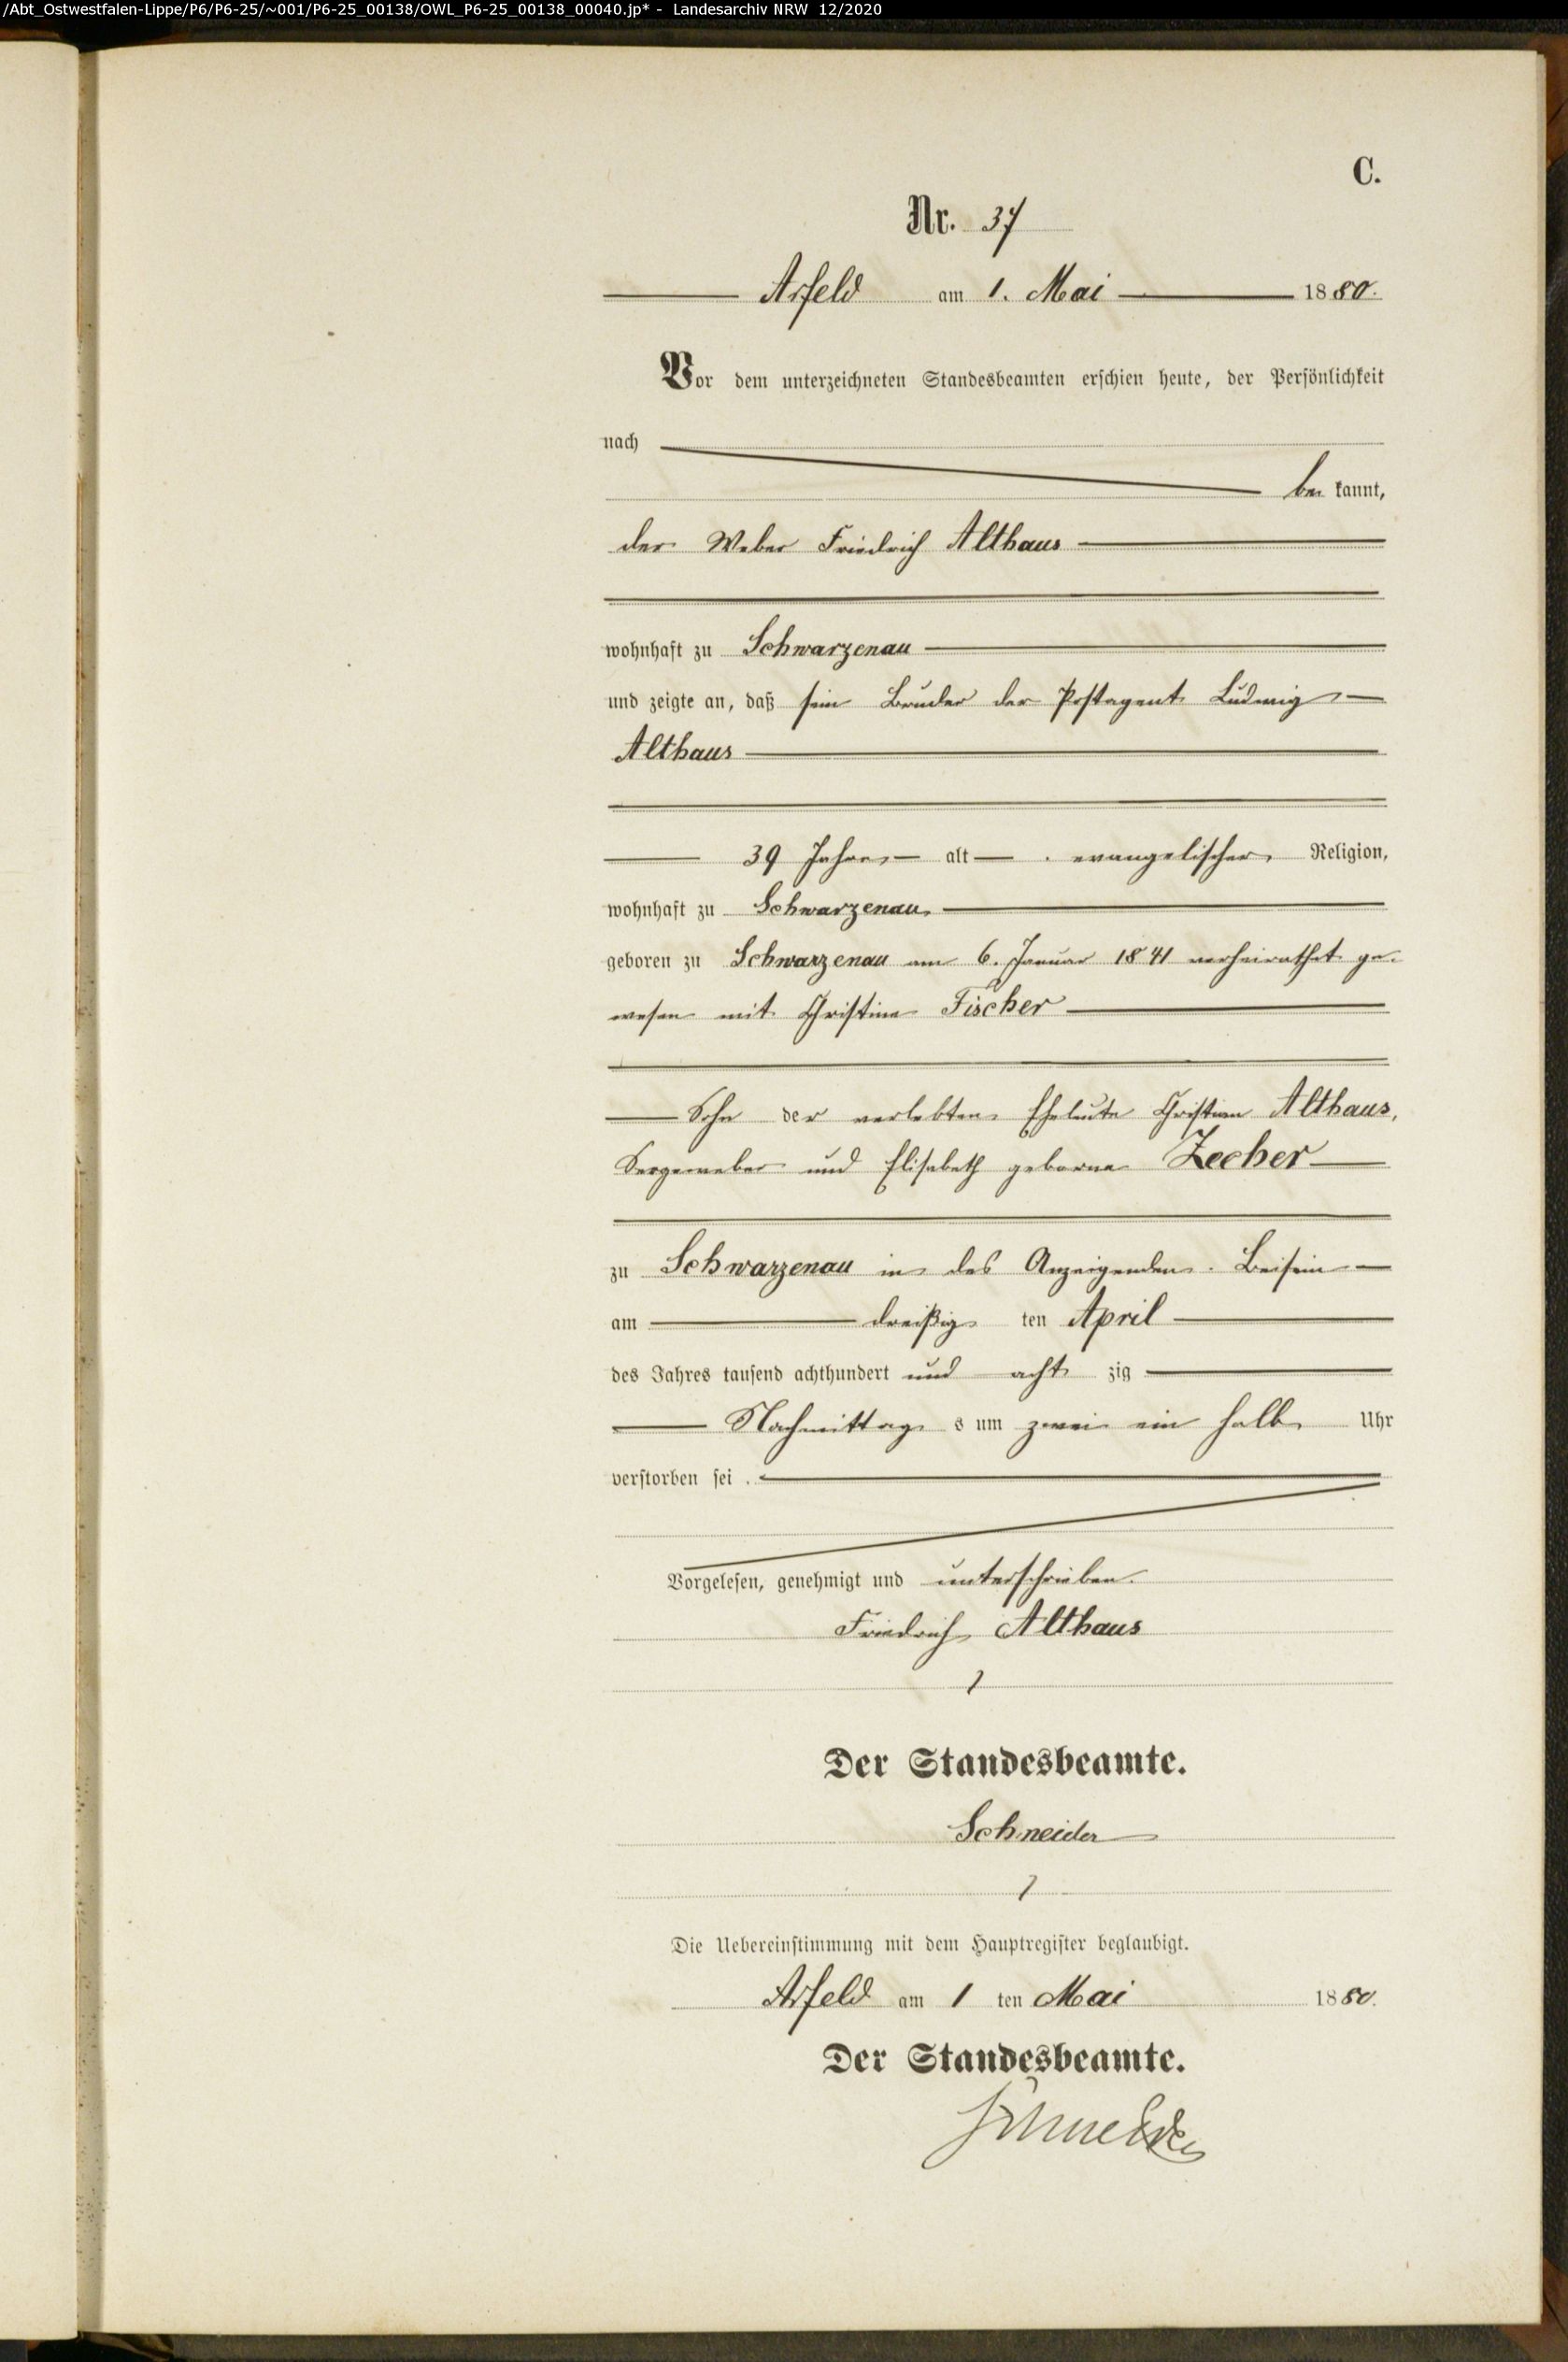 /Abt_Ostwestfalen-Lippe/P6/P6-25/~001/P6-25_00138/OWL_P6-25_00138_00040.jp* - Landesarchiv NRW 12/2020
C.
Nr. 37
Arfeld am 1. Mai 1880.
Vor dem unterzeichneten Standesbeamten erschien heute, der Persönlichkeit
nach
be kannt,
der Weber Friedrich Althaus
wohnhaft zu Schwarzenau
und zeigte an, daß sein Bruder der Postagent Ludwig
Althaus
39 Jahre alt evangelischer Religion,
wohnhaft zu Schwarzenau
geboren zu Schwarzenau am 6. Januar 1841 verheirathet ge-
wesen mit Christine Fischer
Sohn der verlebten Eheleute Christian Althaus,
und Elisabeth geborne Zecher
zu Schwarzenau in des Anzeigenden Beisein
am dreißig ten April
des Jahres tausend achthundert und acht zig
Nachmittag s um zwei ein halb Uhr
verstorben sei.
Vorgelesen, genehmigt und unterschrieben.
Friedrich Althaus
Der Standesbeamte.
Schneider
Die Uebereinstimmung mit dem Hauptregister beglaubigt.
Arfeld am 1 ten Mai 1880.
Der Standesbeamte.
Schneider